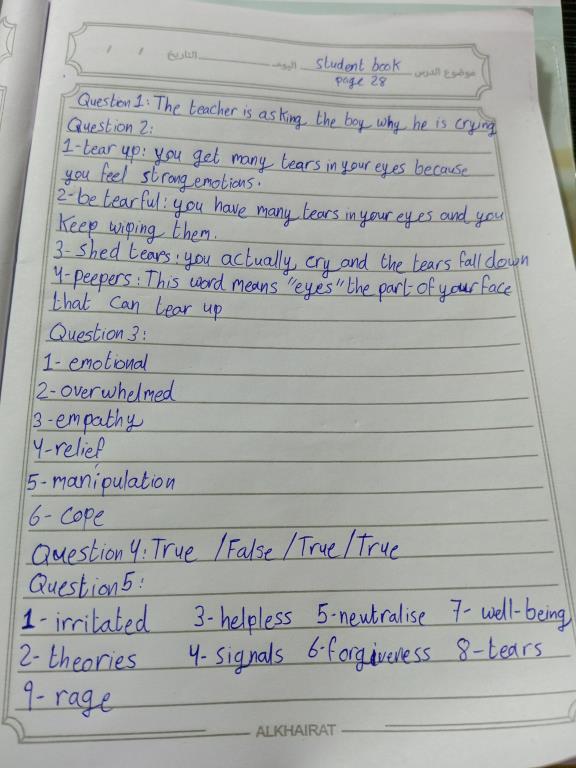 موضوع الدرس student book اليوم التاريخ / /
page 28
Question 1: The teacher is asking the boy why he is crying
Question 2:
1-tear up: you get many tears in your eyes because
you feel strong emotions.
2-be tearful: you have many tears in your eyes and you
Keep wiping them.
3- Shed tears: you actually cry and the tears fall down
4-peepers: This word means "eyes" the part of your face
that can tear up
Question 3:
1- emotional
2-overwhelmed
3-empathy
4-relief
5-manipulation
6- cope
Question 4: True / False / True / True
Question 5:
1-irritated 3-helpless 5-neutralise 7-well-being
2-theories 4-signals 6-forgiveness 8-tears
9-rage
ALKHAIRAT